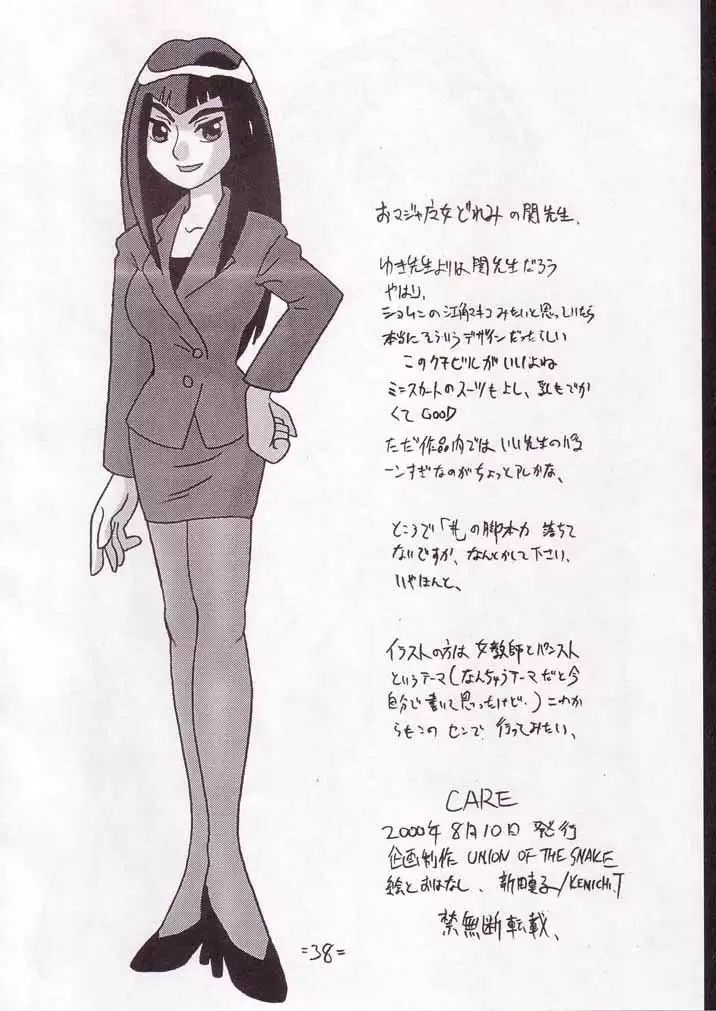 おジャ魔女どれみの関先生、
ゆき先生よりは関先生だろう
やはり、
ショムニの江角マキコみたいと思っていたら
本当にそういうデザインだったらしい
このクチビルがいいよね
ミニスカートのスーツもよし、乳もでか
くてGOOD
ただ作品内ではいい先生のバカ
ーンすぎなのがちょっとアレかな、
ところで「#」の脚本力 落ちて
ないですか、なんとかして下さい、
いやほんと、
イラストの方は女教師とパンスト
というテーマ(なんちゅうテーマだと今
自分で書いて思ったけど・)これか
らもこのセンで行ってみたい、
CARE
2000年8月10日 発行
企画制作 UNION OF THE SNAKE
絵とおはなし、新田真子/KENICHI.T
禁無断転載、
=38=